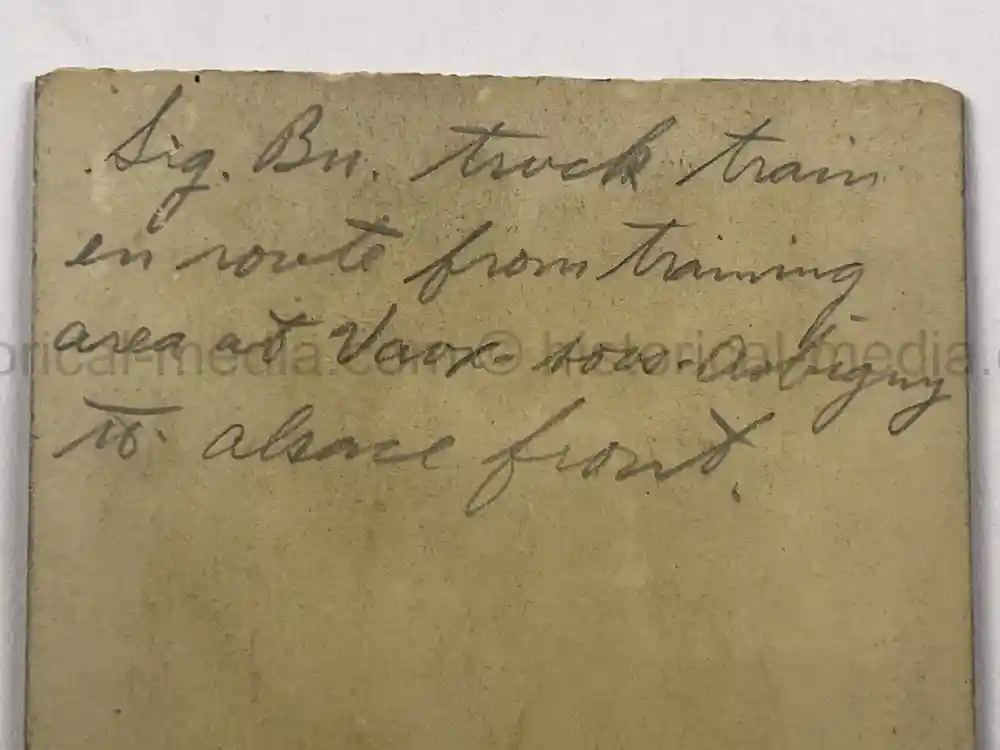 Sig. Bn. truck train
en route from training
area at Vaux-sous-Aubigny
to alsace front.
historical-media.com © historical-media.com